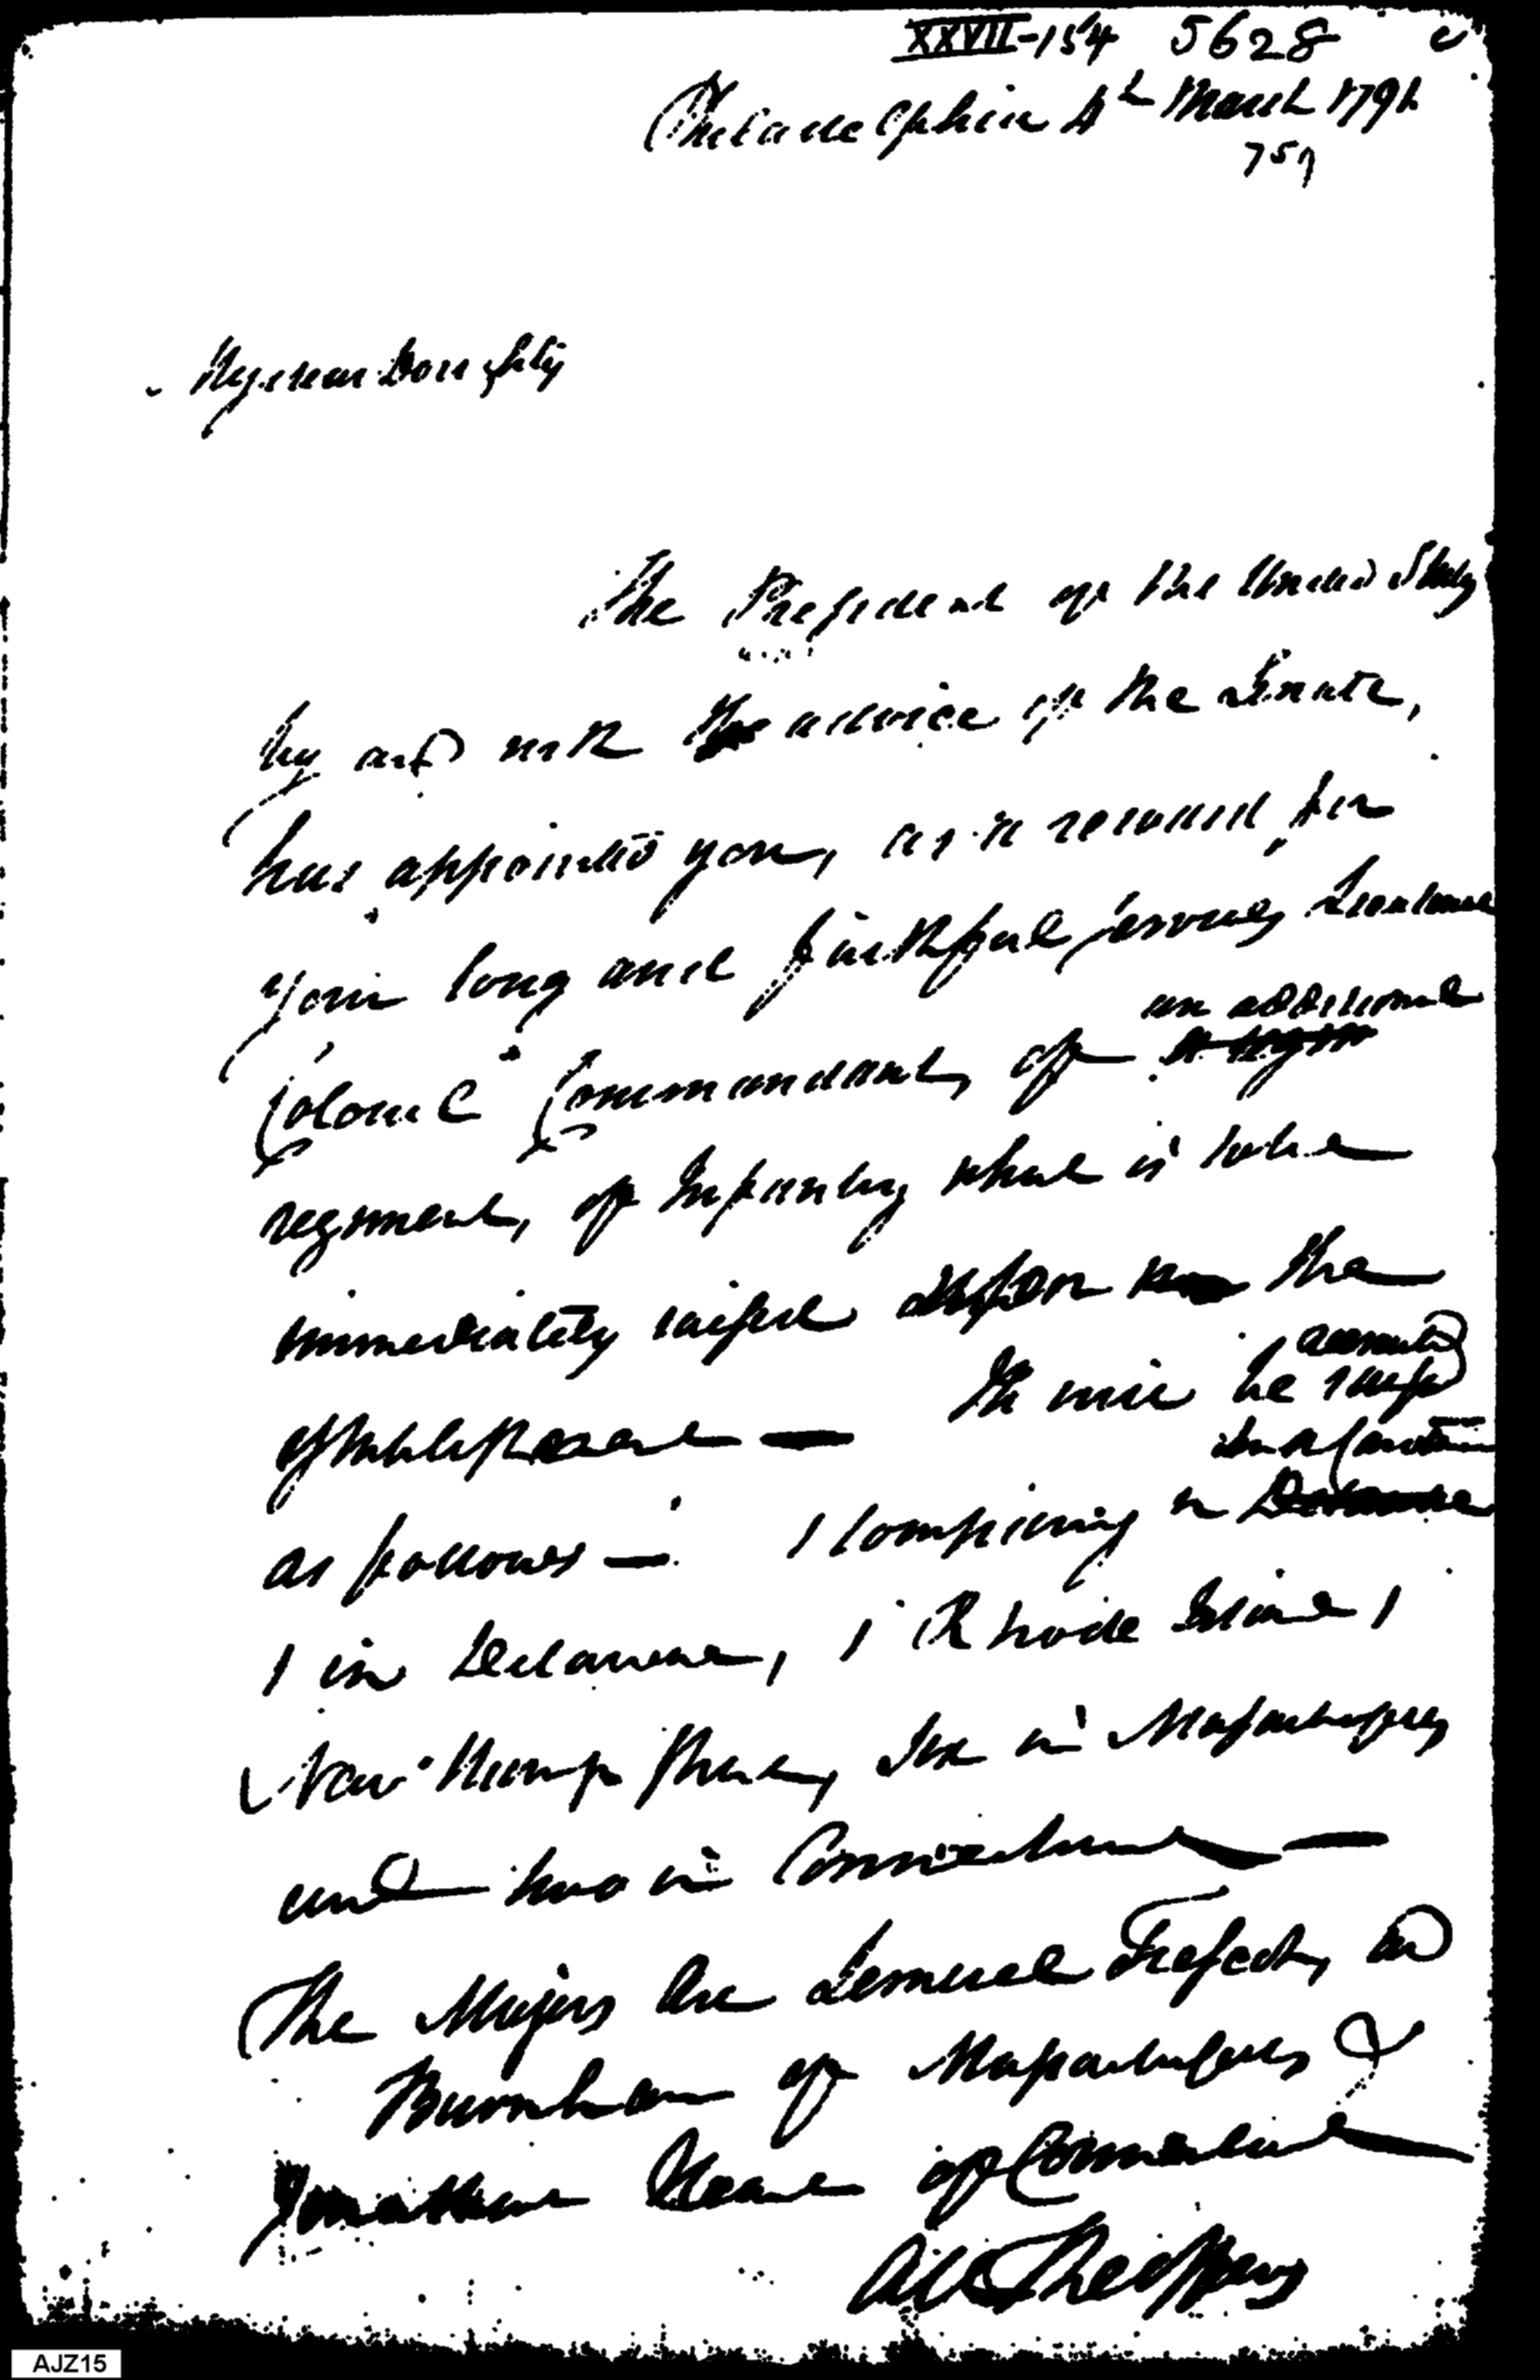 XXVII-154 5628
Philadelphia 4th March 1791
757
My dear Doughty
The President of the United States
by and with the advice of the Senate,
has appointed you, as a reward for
your long and faithful services Lieutenant
Colonel Commandant, of
an additional
regiment, of Infantry which is to be
immediately raised upon the
establishment — It will be
recruited
as follows — 1 company in
South Carolina
1 in Delaware, 1 Rhode Island 1
New Hampshire, Six in Massachusetts
and two in Connecticut —
The Majors are Lemuel Trescott, and
Burnham of Massachusetts &
Jonathan Heart of Connecticut
All the officers
AJZ15